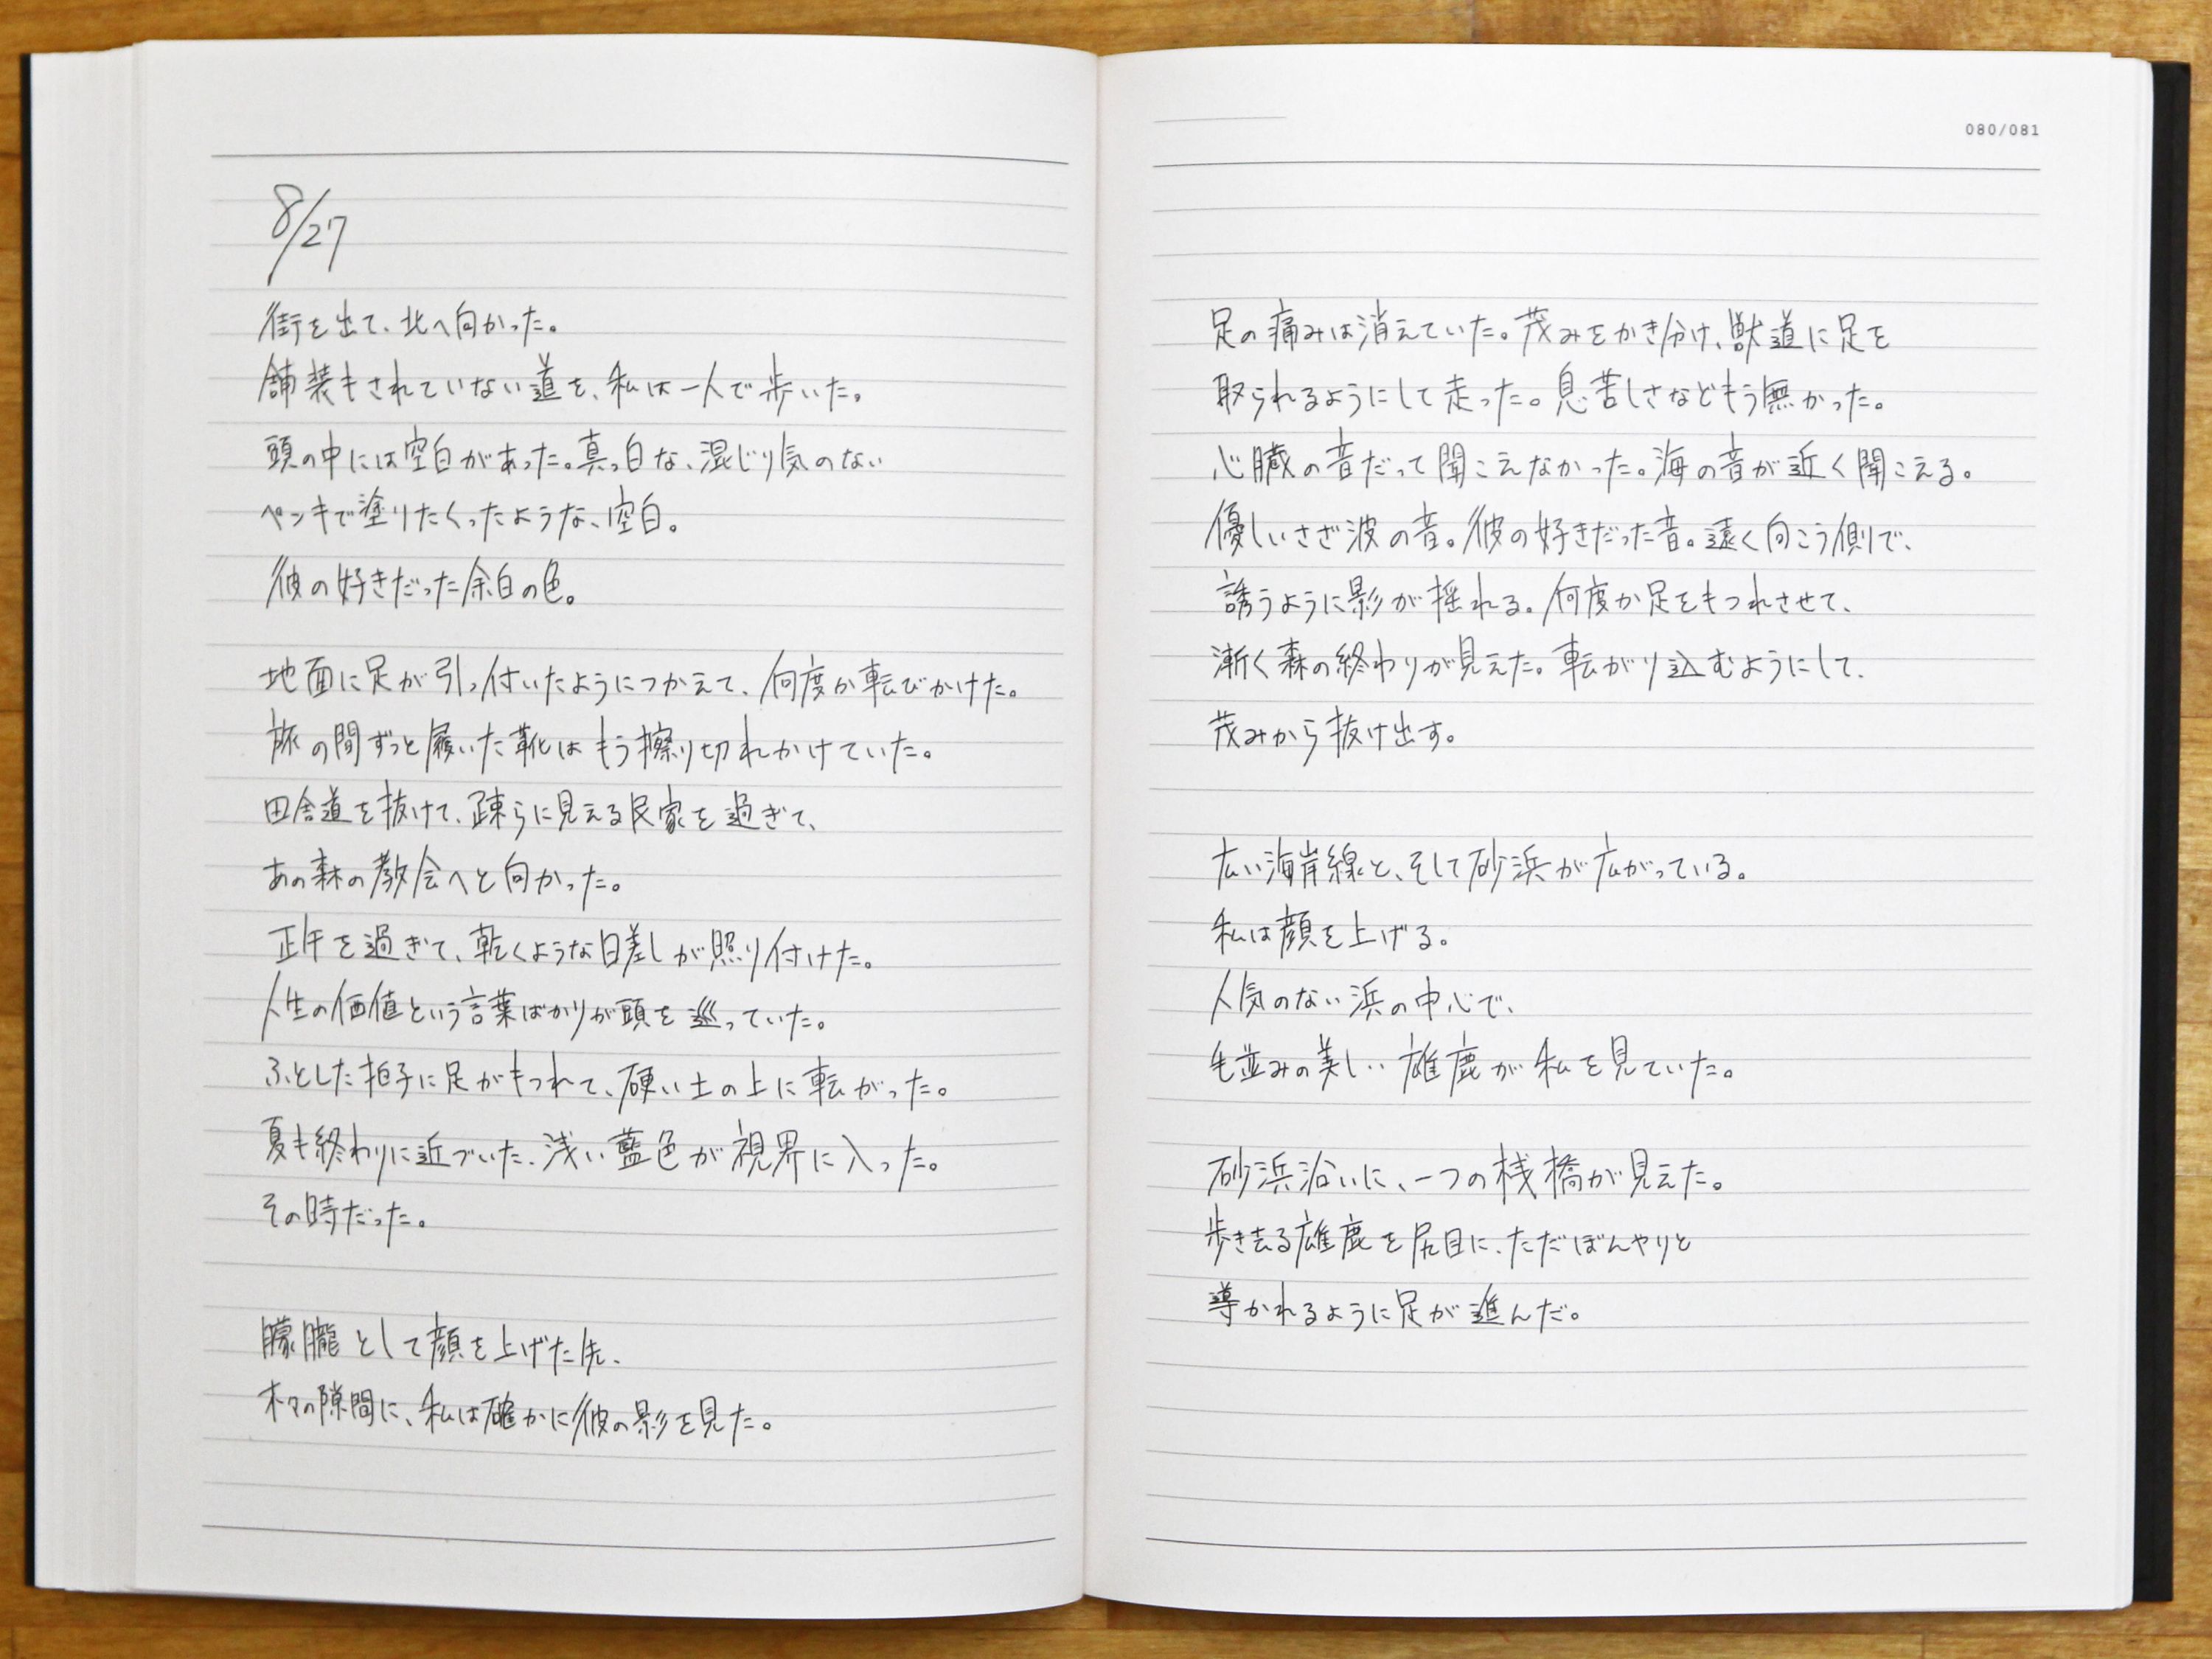 8/27
街を出て、北へ向かった。
舗装もされていない道を、私は一人で歩いた。
頭の中には空白があった。真っ白な、混じり気のない
ペンキで塗りたくったような、空白。
彼の好きだった余白の色。
地面に足が引っ付いたようにつかえて、何度か転びかけた。
旅の間ずっと履いた靴はもう擦り切れかけていた。
田舎道を抜けて、疎らに見える民家を過ぎて、
あの森の教会へと向かった。
正午を過ぎて、乾くような日差しが照り付けた。
人生の価値という言葉ばかりが頭を巡っていた。
ふとした拍子に足がもつれて、硬い土の上に転がった。
夏も終わりに近づいた、浅い藍色が視界に入った。
その時だった。
朦朧として顔を上げた先、
木々の隙間に、私は確かに彼の影を見た。
080/081
足の痛みは消えていた。茂みをかき分け、獣道に足を
取られるようにして走った。息苦しさなどもう無かった。
心臓の音だって聞こえなかった。海の音が近く聞こえる。
優しいさざ波の音。彼の好きだった音。遠く向こう側で、
誘うように影が揺れる。何度か足をもつれさせて、
漸く森の終わりが見えた。転がり込むようにして、
茂みから抜け出す。
広い海岸線と、そして砂浜が広がっている。
私は顔を上げる。
人気のない浜の中心で、
毛並みの美しい雄鹿が私を見ていた。
砂浜沿いに、一つの桟橋が見えた。
歩き去る雄鹿を尻目に、ただぼんやりと
導かれるように足が進んだ。